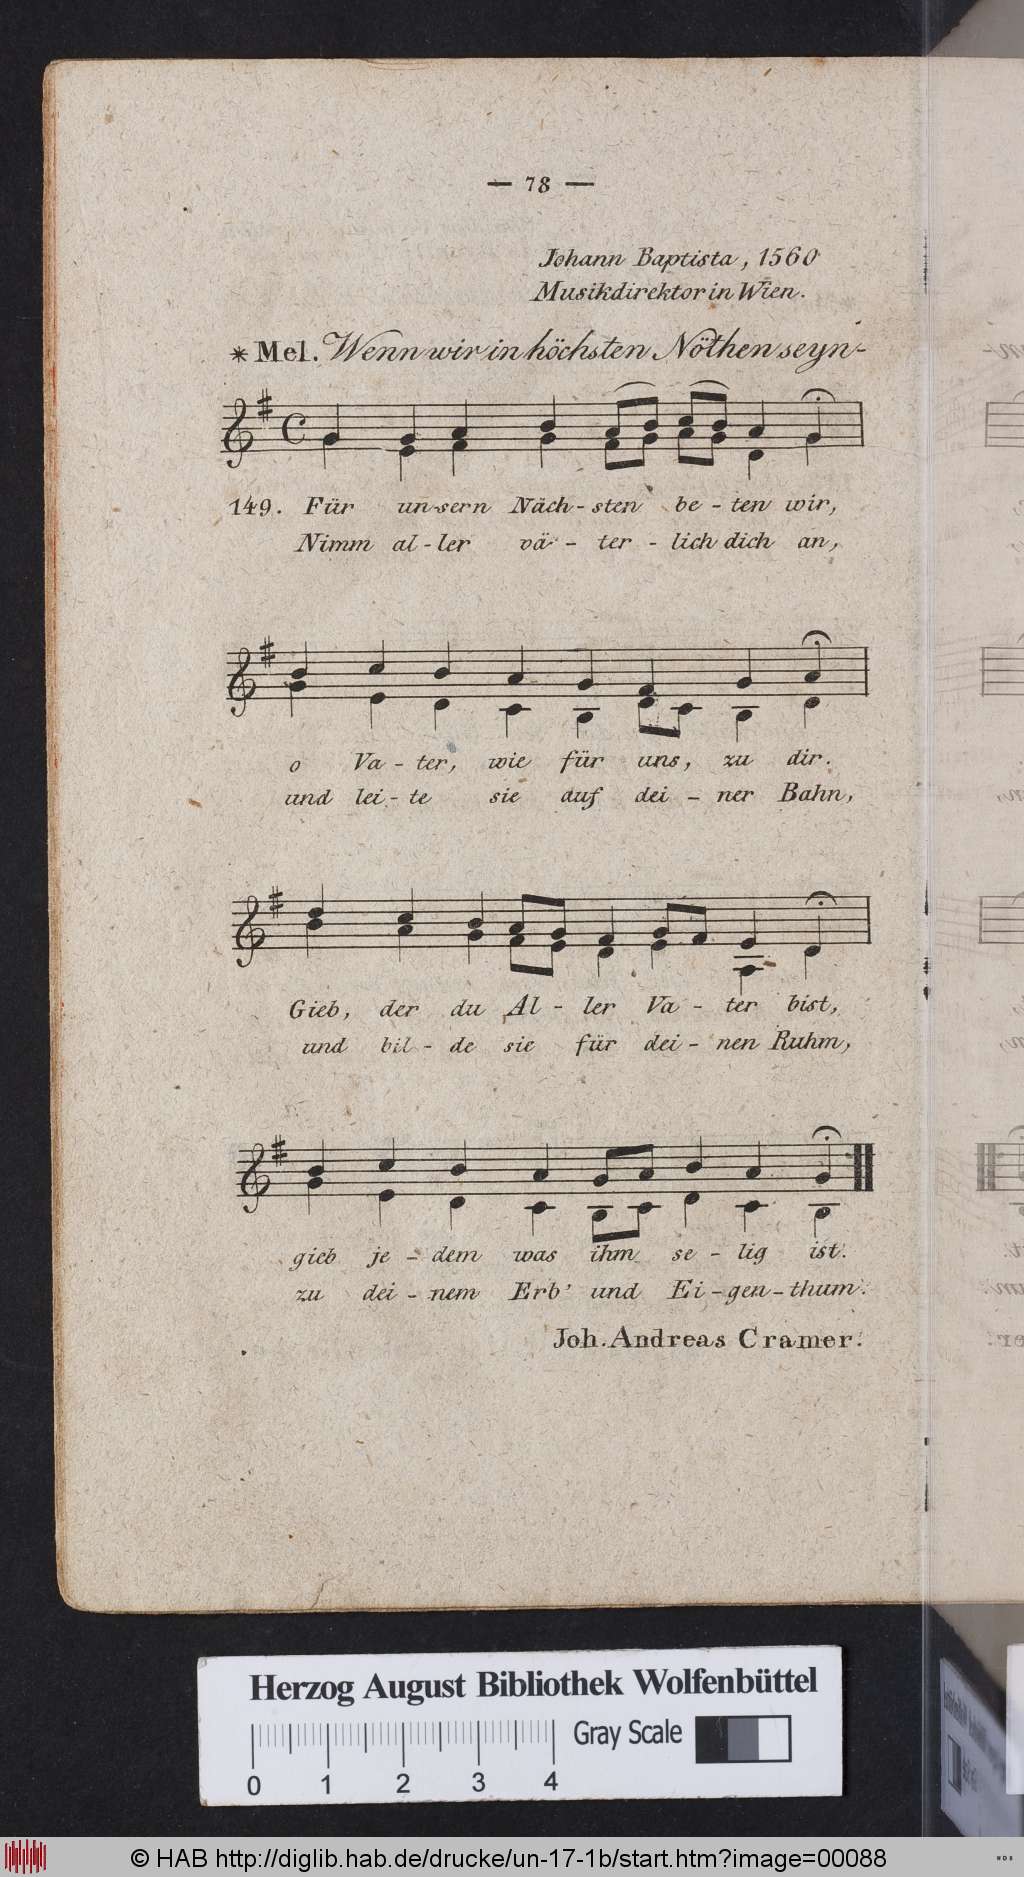 — 78 —
Johann Baptista, 1560
Musikdirektor in Wien.
* Mel. Wenn wir in höchsten Nöthen seyn-
149. Für un-sern Näch-sten be-ten wir,
Nimm al-ler vä-ter-lich dich an,
o Va-ter, wie für uns, zu dir.
und lei-te sie auf dei-ner Bahn,
Gieb, der du Al-ler Va-ter bist,
und bil-de sie für dei-nen Ruhm,
gieb je-dem was ihm se-lig ist.
zu dei-nem Erb' und Ei-gen-thum.
Joh. Andreas Cramer.
Herzog August Bibliothek Wolfenbüttel
Gray Scale
0 1 2 3 4
© HAB http://diglib.hab.de/drucke/un-17-1b/start.htm?image=00088